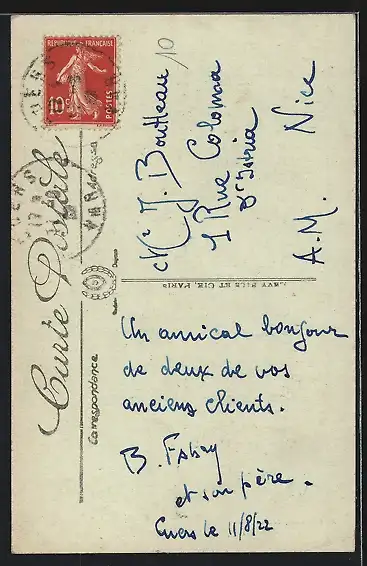 RÉPUBLIQUE FRANÇAISE
10c
POSTES
CUERS
VAR
10
Carte Postale
Adresse
Correspondance
M. J. Boutteau
1 Rue Colonna
d'Istria
Nice
A.M.
LEVY FILS ET CIE, PARIS
Un amical bonjour
de deux de vos
anciens clients.
B. Fabry
et son père.
Cuers le 11/8/22